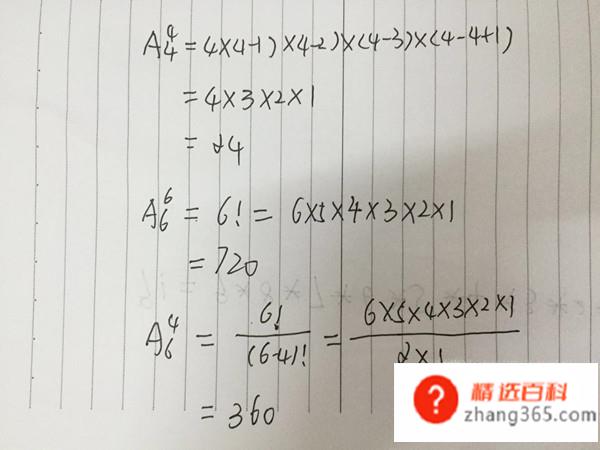 A₄⁴ = 4×4-1)×4-2)×(4-3)×(4-4+1)
= 4×3×2×1
= 24
A₆⁶ = 6! = 6×5×4×3×2×1
= 720
A₆⁴ = 6!/(6-4)! = 6×5×4×3×2×1/2×1
= 360
精选百科
zhang365.com